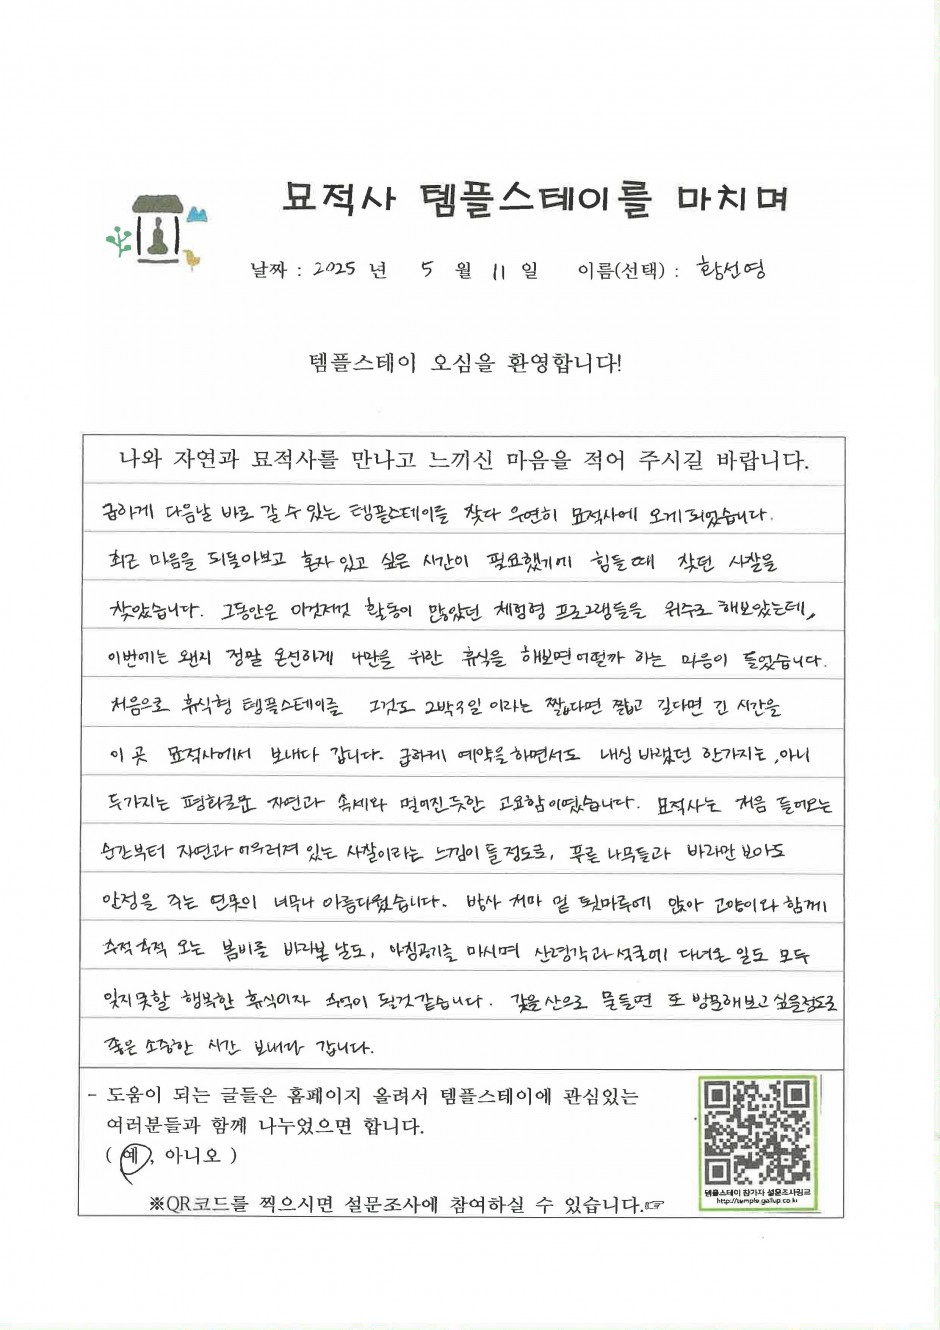 묘적사 템플스테이를 마치며
날짜 : 2025 년 5 월 11 일 이름(선택) : 황선영
템플스테이 오심을 환영합니다!
나와 자연과 묘적사를 만나고 느끼신 마음을 적어 주시길 바랍니다.
급하게 다음날 바로 갈 수 있는 템플스테이를 찾다 우연히 묘적사에 오게 되었습니다.
최근 마음을 되돌아보고 혼자 있고 싶은 시간이 필요했기에 힘들 때 찾던 사찰을
찾았습니다. 그동안은 이것저것 활동이 많았던 체험형 프로그램들을 위주로 해보았는데,
이번에는 왠지 정말 온전하게 나만을 위한 휴식을 해보면 어떨까 하는 마음이 들었습니다.
처음으로 휴식형 템플스테이를 그것도 2박3일 이라는 짧다면 짧고 길다면 긴 시간을
이 곳 묘적사에서 보내다 갑니다. 급하게 예약을 하면서도 내심 바랬던 한가지는, 아니
두가지는 평화로운 자연과 속세와 멀어진 듯한 고요함이었습니다. 묘적사는 처음 들어오는
순간부터 자연과 어우러져 있는 사찰이라는 느낌이 들 정도로, 푸른 나무들과 바라만 보아도
안정을 주는 연못이 너무나 아름다웠습니다. 방사 처마 밑 툇마루에 앉아 고양이와 함께
추적추적 오는 봄비를 바라본 날도, 아침공기를 마시며 산령각과 석굴에 다녀온 일도 모두
잊지못할 행복한 휴식이자 추억이 될것 같습니다. 가을 산으로 물들면 또 방문해보고 싶을정도로
좋은 소중한 시간 보내다 갑니다.
- 도움이 되는 글들은 홈페이지 올려서 템플스테이에 관심있는
여러분들과 함께 나누었으면 합니다.
( 예, 아니오 )
※QR코드를 찍으시면 설문조사에 참여하실 수 있습니다.☞
템플스테이 참가자 설문조사링크
http://temple.gallup.co.kr